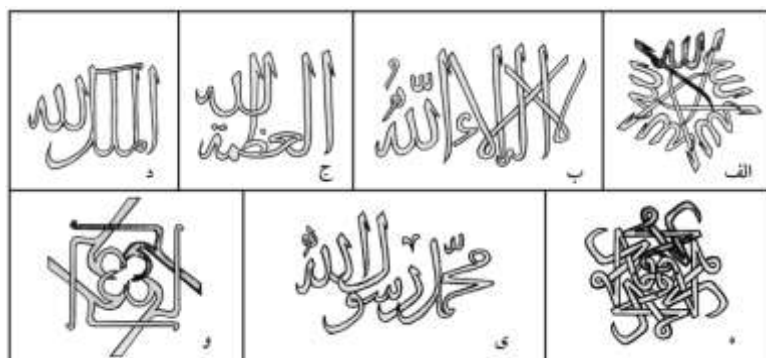 الله
الف
لا اله الا الله
ب
العظمة لله
ج
الملك لله
د
ه
محمد رسول الله
ی
و